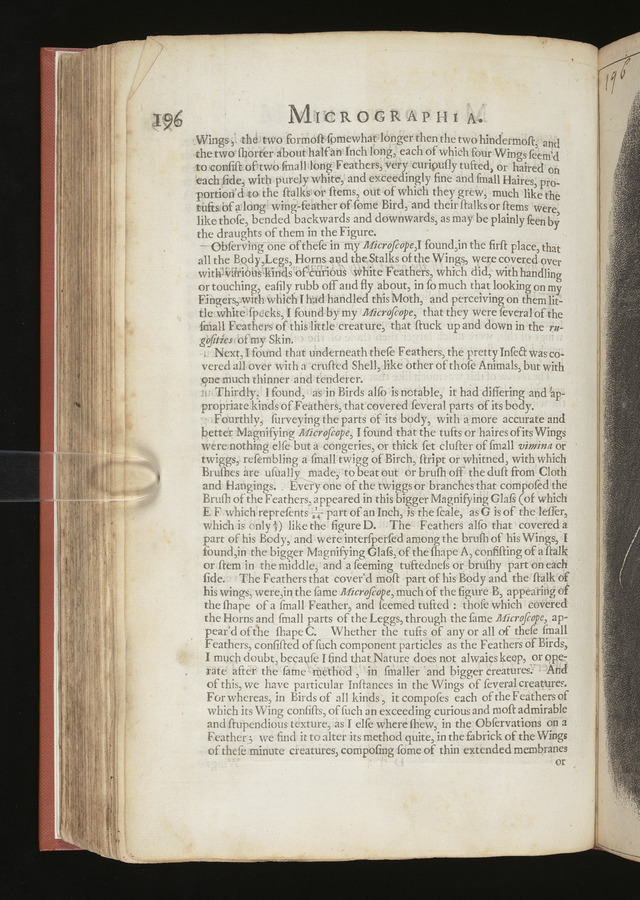 196 MICROGRAPHIA.
196
Wings; the two formoſt ſomewhat longer then the two hindermoſt, and
the two ſhorter about half an Inch long, each of which four Wings ſeem'd
to conſiſt of two ſmall long Feathers, very curiouſly tufted, or haired on
each ſide, with purely white, and exceedingly fine and ſmall Haires, pro-
portion'd to the ſtalks or ſtems, out of which they grew, much like the
tufts of a long wing-feather of ſome Bird, and their ſtalks or ſtems were,
like thoſe, bended backwards and downwards, as may be plainly ſeen by
the draughts of them in the Figure.
Obſerving one of theſe in my Microſcope, I found, in the firſt place, that
all the Body, Legs, Horns and the Stalks of the Wings, were covered over
with various kinds of curious white Feathers, which did, with handling
or touching, eaſily rubb off and fly about, in ſo much that looking on my
Fingers, with which I had handled this Moth, and perceiving on them lit-
tle white ſpecks, I found by my Microſcope, that they were ſeveral of the
ſmall Feathers of this little creature, that ſtuck up and down in the ru-
goſities of my Skin.
Next, I found that underneath theſe Feathers, the pretty Inſect was co-
vered all over with a cruſted Shell, like other of thoſe Animals, but with
one much thinner and tenderer.
Thirdly, I found, as in Birds alſo is notable, it had differing and ap-
propriate kinds of Feathers, that covered ſeveral parts of its body.
Fourthly, ſurveying the parts of its body, with a more accurate and
better Magnifying Microſcope, I found that the tufts or haires of its Wings
were nothing elſe but a congeries, or thick ſet cluſter of ſmall vimina or
twiggs, reſembling a ſmall twigg of Birch, ſtript or whitned, with which
Bruſhes are uſually made, to beat out or bruſh off the duſt from Cloth
and Hangings. Every one of the twiggs or branches that compoſed the
Bruſh of the Feathers, appeared in this bigger Magnifying Glaſs (of which
E F which repreſents part of an Inch, is the ſcale, as G is of the leſſer,
which is only ) like the figure D. The Feathers alſo that covered a
part of his Body, and were interſperſed among the bruſh of his Wings, I
found, in the bigger Magnifying Glaſs, of the ſhape A, conſiſting of a ſtalk
or ſtem in the middle, and a ſeeming tuftedneſs or bruſhy part on each
ſide. The Feathers that cover'd moſt part of his Body and the ſtalk of
his wings, were, in the ſame Microſcope, much of the figure B, appearing of
the ſhape of a ſmall Feather, and ſeemed tufted : thoſe which covered
the Horns and ſmall parts of the Leggs, through the ſame Microſcope, ap-
pear'd of the ſhape C. Whether the tufts of any or all of theſe ſmall
Feathers, conſiſted of ſuch component particles as the Feathers of Birds,
I much doubt, becauſe I find that Nature does not alwaies keep, or ope-
rate after the ſame method, in ſmaller and bigger creatures. And
of this, we have particular Inſtances in the Wings of ſeveral creatures.
For whereas, in Birds of all kinds, it compoſes each of the Feathers of
which its Wing conſiſts, of ſuch an exceeding curious and moſt admirable
and ſtupendious texture, as I elſe where ſhew, in the Obſervations on a
Feather; we find it to alter its method quite, in the fabrick of the Wings
of theſe minute creatures, compoſing ſome of thin extended membranes
or